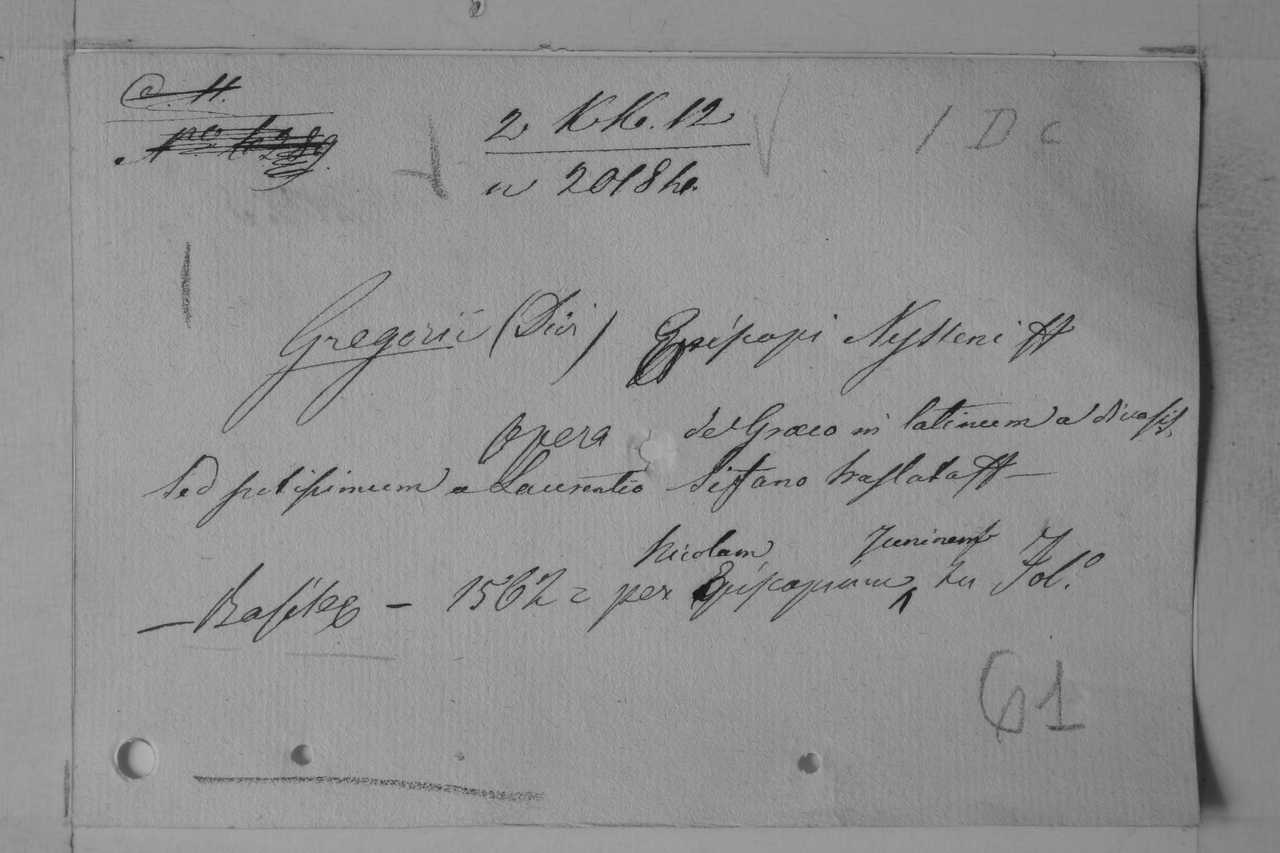 C. H.
Nº 6289.
2 KK. 12
1 D c
n 2018 he.
Gregorii (Divi) Episcopi Nysseni
opera de Græco in latinum a diversis,
sed potissimum a Laurentio Sifano traslata
Nicolam Juniorem
— Basileæ — 1562 = per Episcopium ^ in Fol.º
61